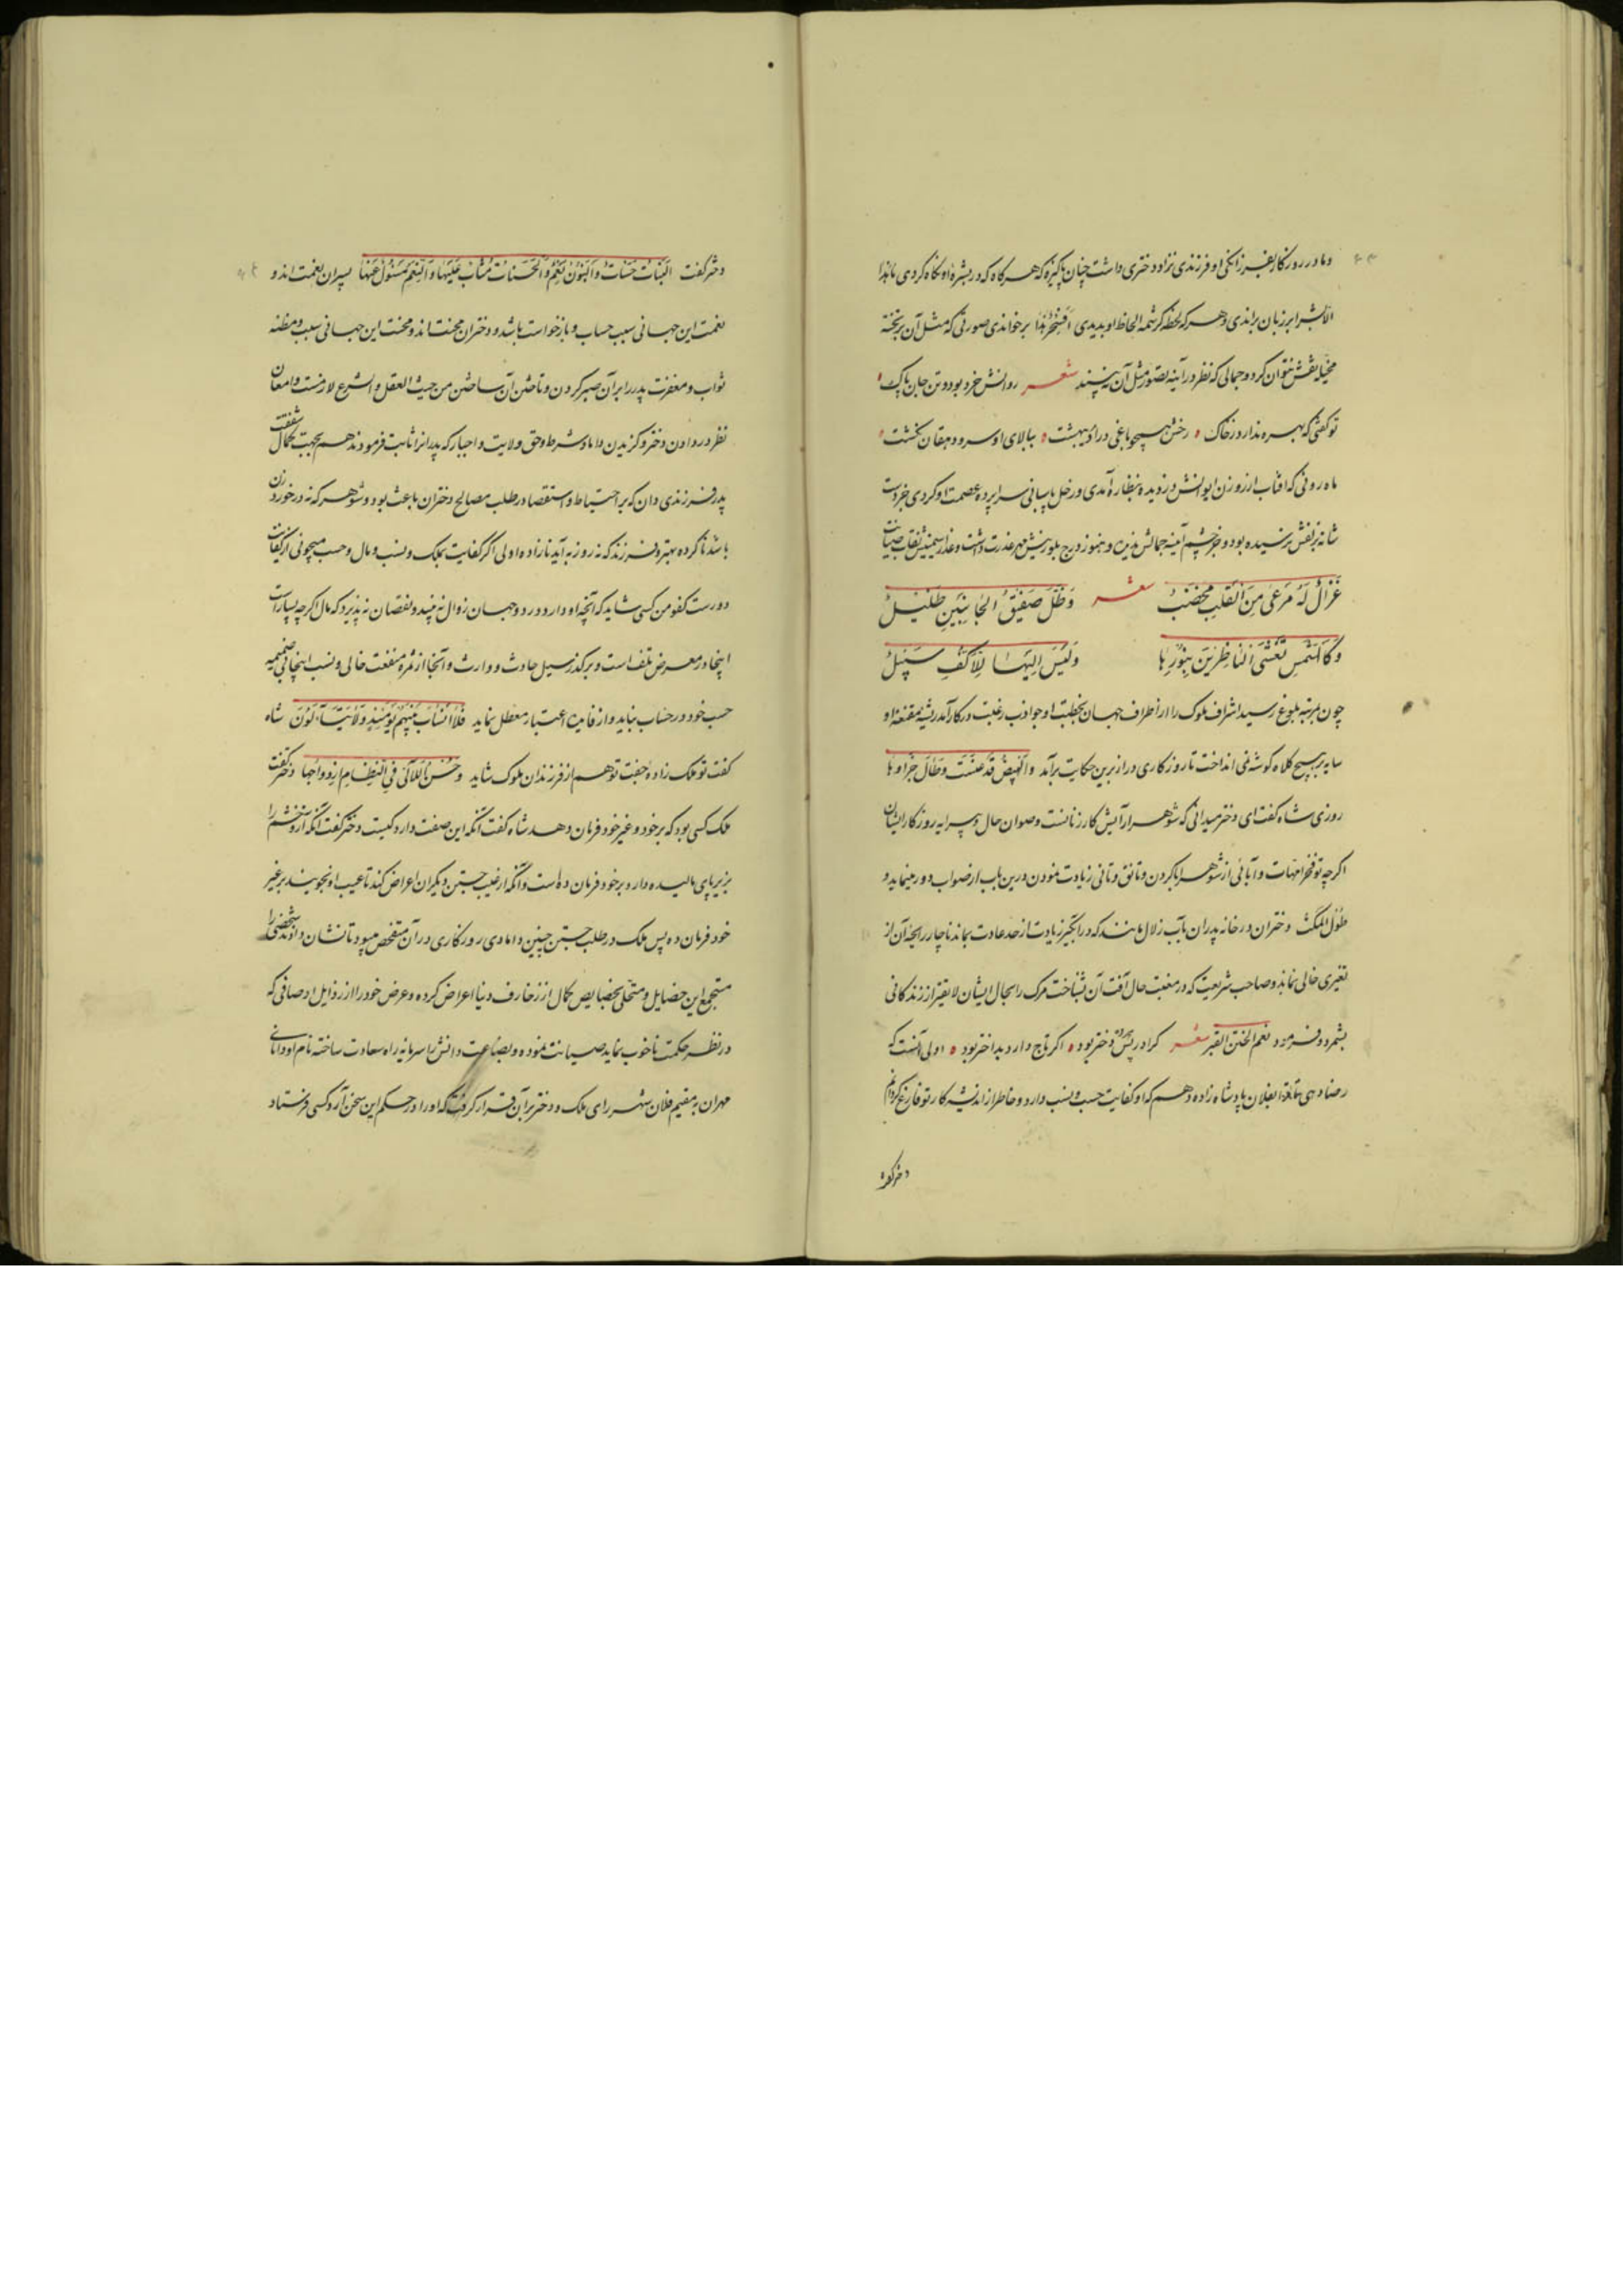 و مادر روزگار بفرزانگی او فرزندی نزاد و دختری داشت چنان پاکیزه که هر گاه که در بشره او نگاه کردی ما هذا
الا بشرا بر زبان براندی و هر که لحظه کرشمه الحاظ او بدیدی افسحر هذا بر خواندی صورتی که مثل آن بر تخته
مخیله نقش نتوان کرد و جمالی که نظر در آینه تصور مثل آن نبیند شعر روانش خرد بود و تن جان پاک
تو گفتی که بهره ندارد ز خاک رخش هیچو باغی در اردیبهشت ببالای او سرو دهقان نکشت
ماه رویی که آفتاب از روزن ایوانش دزدیده بنظاره آمدی و زحل پاسبانی سراپرده عصمت او کردی جز دست
شانه بزلفش نرسیده بود و جز چشم آینه جمالش ندیده و هنوز درج بلورینش مهر عذرت داشت و عذار سیمینش نقاب صیانت
غزال له مرعی من القلب مخصب شعر و ظل صفیق الجانبین ظلیل
و کالشمس تغشی الناظرین بنورها ولیس الیها للاکف سبیل
چون بمرتبه بلوغ رسید اشراف ملوک را از اطراف جهان بخطبت او جواذب رغبت در کار آمد ریشه مقنعه او
سایه بر هیچ کلاه گوشه نمی انداخت تا روزگاری دراز برین حکایت برآمد والبیض قد عنست و طال جراؤها
روزی شاه گفت ای دختر میدانی که شوهر آرایش کار زنانست و صوان حال و پیرایه روزگار ایشان
اگرچه تو فخر امهات و آبائی از شوهر ابا کردن و تانق و تانی زیادت نمودن درین باب از صواب دور مینماید و
طول المکث دختران در خانه پدران بآب زلال مانند که در آبگیر زیادت از حد عادت بماند ناچار رایحه آن از
تغیری خالی نماند و صاحب شریعت که در مغبت حال آفت آن شناخت مرگ را بحال ایشان لایق‌تر از زندگانی
بشمرد و فرمود نعم الختن القبر شعر کرا در پس پرده دختر بود اگر تاج دارد بداختر بود اولی آنست که
رضا دهی تا ترا بفلان پادشاه‌زاده دهم که او کفایت حسب و نسب دارد و خاطر از اندیشه کار تو فارغ گردانم
دختر گفت
دختر گفت البنات حسنات و البنون نعم و الحسنات مثاب علیها و النعم مسئول عنها پسران نعمت‌اند و
نعمت این جهانی سبب حساب و بازخواست باشد و دختران محنت‌اند و محنت این جهانی سبب و مظنه
ثواب و مغفرت پدر را بر آن صبر کردن و تاختن آن ساختن من حیث العقل و الشرع لازمست و امعان
نظر در دادن دختر و گزیدن داماد شرط و حق ولایت و اجبار که پدرانرا ثابت فرمودند هم بجهت کمال شفقت
پدر فرزندی دان که بر احتیاط و استقصا در طلب مصالح دختران باعث بود و شوهر که نه در خورد زن
باشد ناکرده بهتر و فرزند که نه روزبه آید نازاده اولی اگر کفایت بملک و نسب و مال و حسب میجوئی از کفائت
دورست کفو من کسی شاید که آنچه او دارد در دو جهان زوال نه بیند و نقصان نه پذیرد که مال اگرچه بسیارست
اینجا در معرض تلف است و بر گذر سیل حادث و وارث و آنجا از ثمره منفعت خالی و نسب اینجا بی ضمیمه
حسب خود در حساب نیاید و از فایده اعتبار معطل نماید فلا انساب بینهم یومئذ و لا یتساءلون شاه
گفت تو ملک‌زاده جفت تو هم از فرزندان ملوک شاید و حسن اللآلی فی النظام ازدواجها دختر گفت
ملک کسی بود که بر خود و غیر خود فرمان دهد شاه گفت آنکه این صفت دارد کیست دختر گفت آنکه آز و خشم را
بزیر پای مالیده دارد بر خود فرمان ده است و آنکه از عیب جستن دیگران اعراض کند تا عیب او نجویند بر غیر
خود فرمان ده پس ملک در طلب جستن چنین دامادی روزگاری در آن متفحص میبود تا نشان دادند شخصی را
مستجمع این خصایل و متحلی بخصایص کمال از زخارف دنیا اعراض کرده و عرض خود را از رذایل اوصافی که
در نظر حکمت ناخوب نماید صیانت نموده و بضاعت دانش را سرمایه راه سعادت ساخته نام او دانای
مهران به مقیم فلان شهر رای ملک و دختر بر آن قرار گرفت که او را در حکم این سخن آرد کسی فرستاد